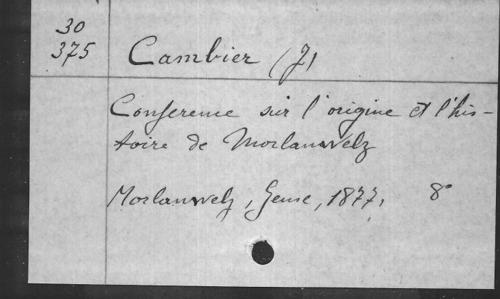 30
375
Cambier (J)
Conference sur l'origine et l'his-
toire de Morlanwelz
Morlanwelz, Geuse, 1877, 8°